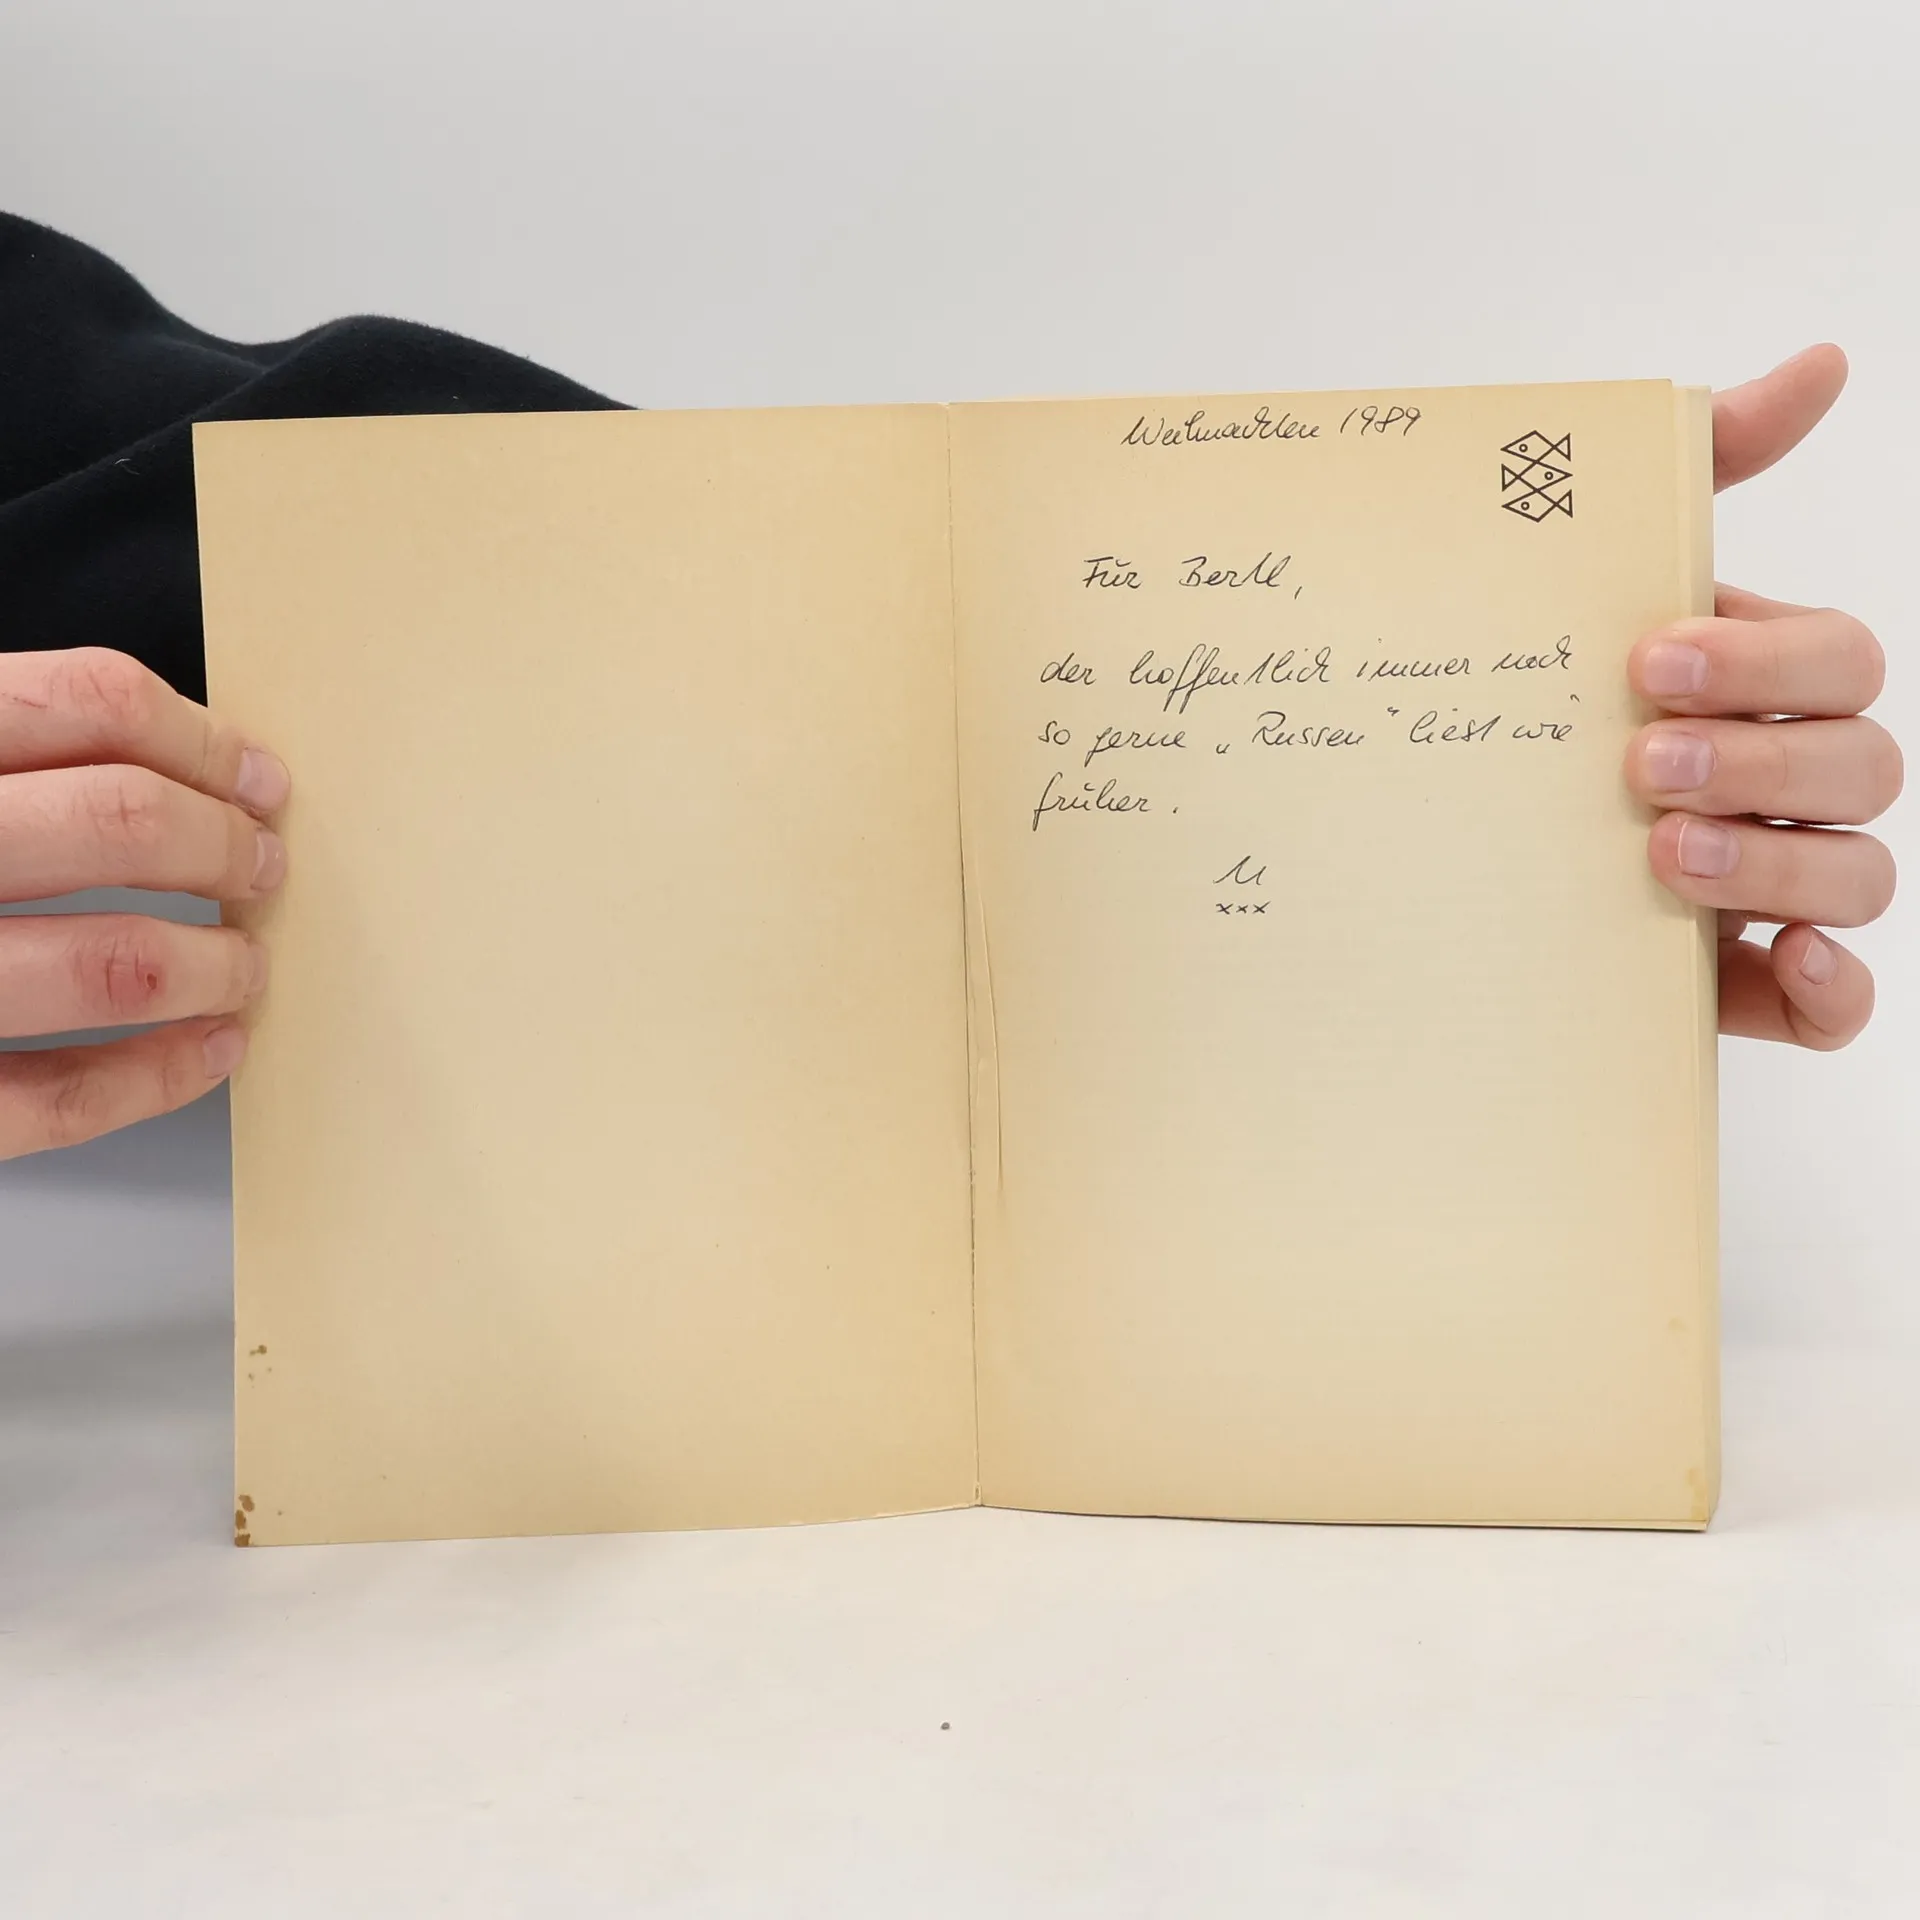 Weihnachten 1989
Für Bertl,
der hoffentlich immer noch
so gerne „Russen" liest wie
früher.
U
xxx